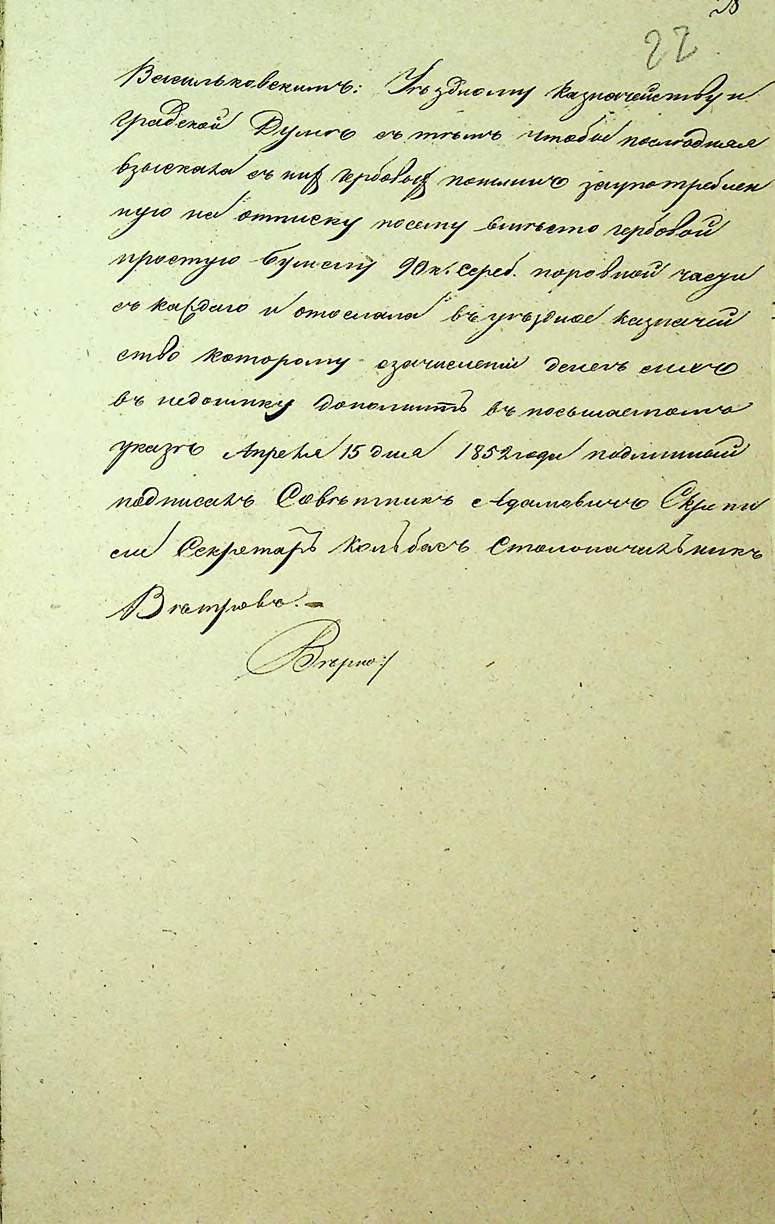 22
Васильковскимъ: Уѣздному казначейству и
градской Думѣ съ тѣмъ чтобы последняя
взыскала съ них гербовых пошлинъ заупотреблен
ную на отписку посему вмѣсто гербовой
простую бумагу 90 к. сереб. поровной части
съ каждаго и отослала въ уѣздное казначей
ство которому озачислении денегъ
въ недоимку дополнить въ посылаемомъ
указѣ Апреля 15 дня 1852 года подлинный
подписалъ Совѣтникъ Адамовичъ Скрепи
ли Секретарь Колбасъ Столоначальникъ
Вѣтровъ.
Вѣрно: